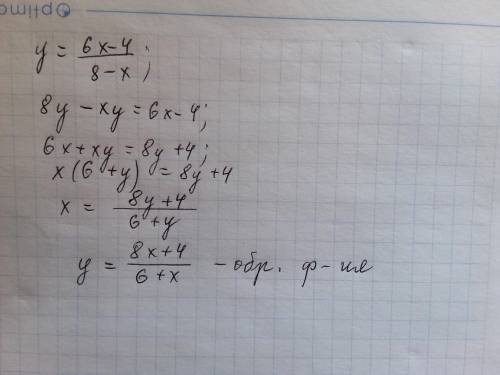 Optima
y = (6x-4)/(8-x);
8y - xy = 6x - 4;
6x + xy = 8y + 4;
x(6 + y) = 8y + 4
x = (8y+4)/(6+y)
y = (8x+4)/(6+x) - обр. ф-ия